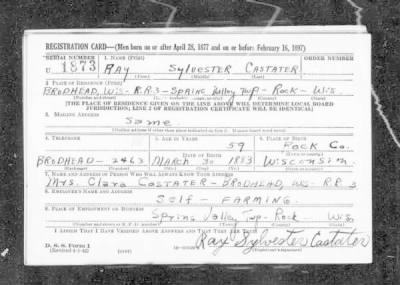 REGISTRATION CARD—(Men born on or after April 28, 1877 and on or before February 16, 1897)
SERIAL NUMBER 1. NAME (Print) ORDER NUMBER
U 1873 RAY SYLVESTER CASTATER
(First) (Middle) (Last)
2. PLACE OF RESIDENCE (Print)
BRODHEAD, WIS - R.R. 3 - SPRING VALLEY TWP - ROCK - WIS.
(Number and street) (Town, township, village, or city) (County) (State)
[THE PLACE OF RESIDENCE GIVEN ON THE LINE ABOVE WILL DETERMINE LOCAL BOARD
JURISDICTION; LINE 2 OF REGISTRATION CERTIFICATE WILL BE IDENTICAL]
3. MAILING ADDRESS
Same
[Mailing address if other than place indicated on line 2. If same insert word same]
4. TELEPHONE 5. AGE IN YEARS 6. PLACE OF BIRTH
59 Rock Co.
DATE OF BIRTH
BRODHEAD - 2463 MARCH 30 1883 WISCONSIN
7. NAME AND ADDRESS OF PERSON WHO WILL ALWAYS KNOW YOUR ADDRESS
MRS. Clara CASTATER - BRODHEAD, WIS - R.R. 3
8. EMPLOYER'S NAME AND ADDRESS
Self - FARMING.
9. PLACE OF EMPLOYMENT OR BUSINESS
Spring Valley Twp - Rock Wis
(Number and street or R. F. D. number) (Town) (County) (State)
I AFFIRM THAT I HAVE VERIFIED ABOVE ANSWERS AND THAT THEY ARE TRUE.
D. S. S. Form 1
(Revised 4-1-42) (over)
Ray Sylvester Castater
(Registrant's signature)